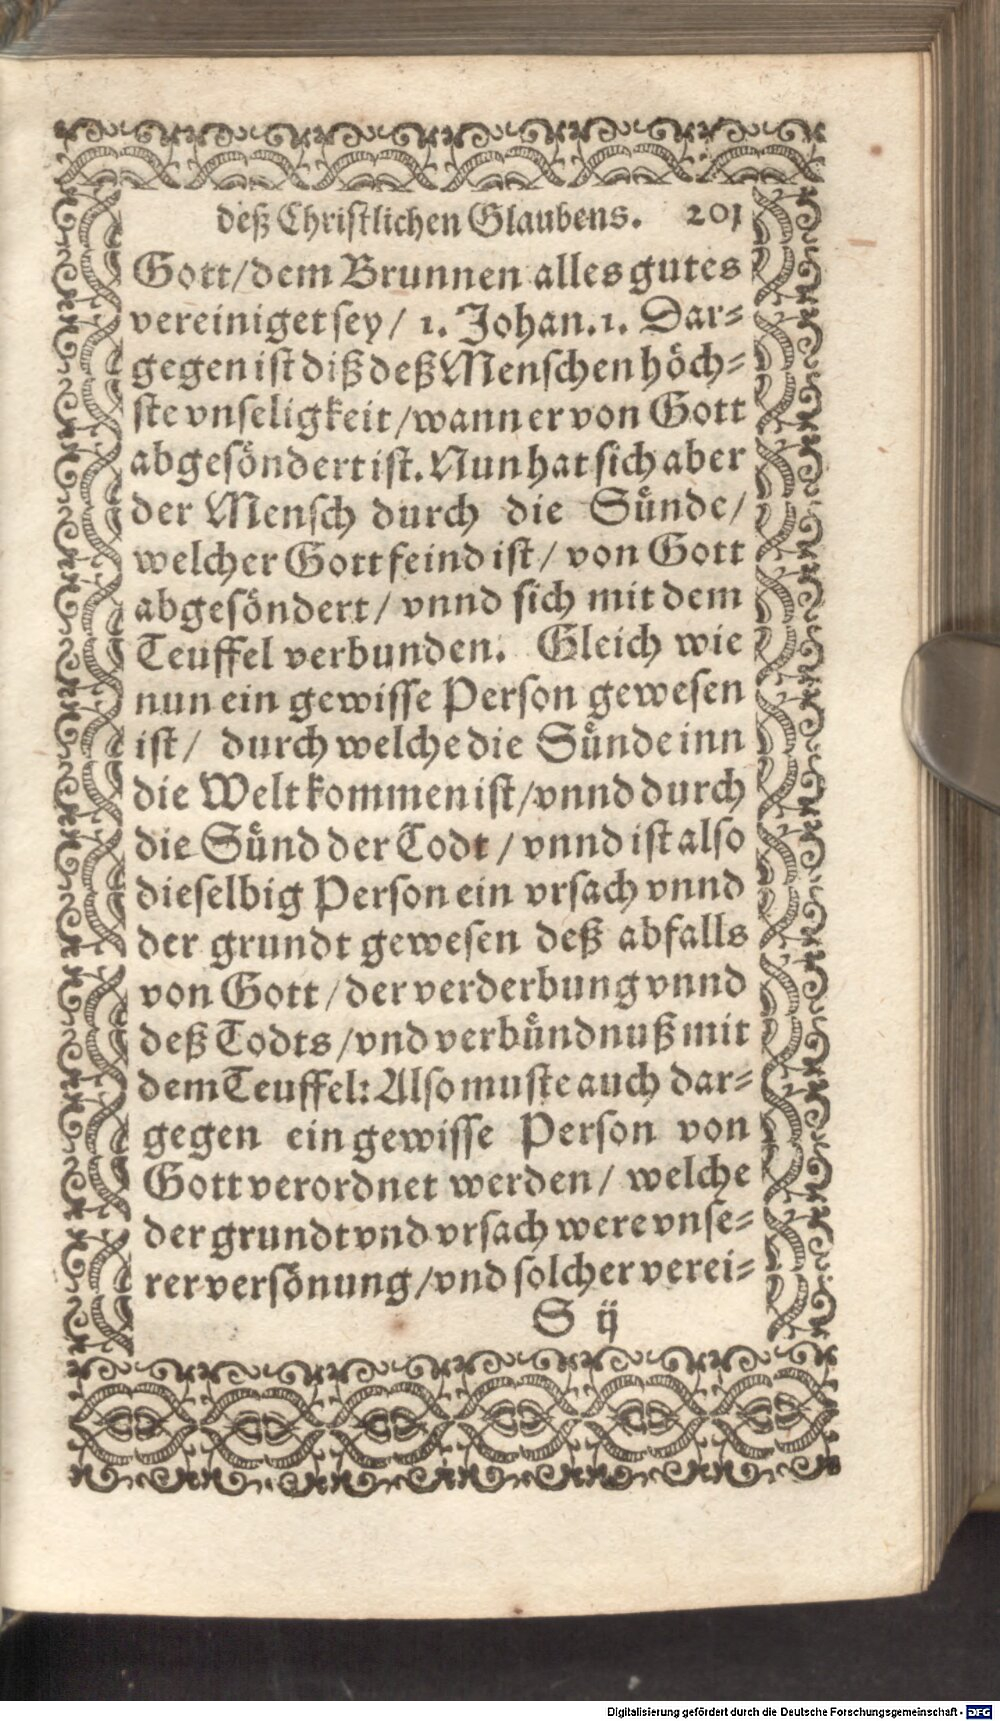 deß Christlichen Glaubens. 201
Gott/dem Brunnen alles gutes
vereiniget sey/ 1. Johan. 1. Dar⸗
gegen ist diß deß Menschen höch⸗
ste vnseligkeit/wann er von Gott
abgesöndert ist. Nun hat sich aber
der Mensch durch die Sünde/
welcher Gott feind ist/ von Gott
abgesöndert/ vnnd sich mit dem
Teuffel verbunden. Gleich wie
nun ein gewisse Person gewesen
ist/ durch welche die Sünde inn
die Welt kommen ist/vnnd durch
die Sünd der Todt/ vnnd ist also
dieselbig Person ein vrsach vnnd
der grundt gewesen deß abfalls
von Gott/der verderbung vnnd
deß Todts/vnd verbündnuß mit
dem Teuffel: Also muste auch dar⸗
gegen ein gewisse Person von
Gott verordnet werden/ welche
der grundt vnd vrsach were vnse⸗
rer versönung/vnd solcher verei⸗
S ij
Digitalisierung gefördert durch die Deutsche Forschungsgemeinschaft - DFG